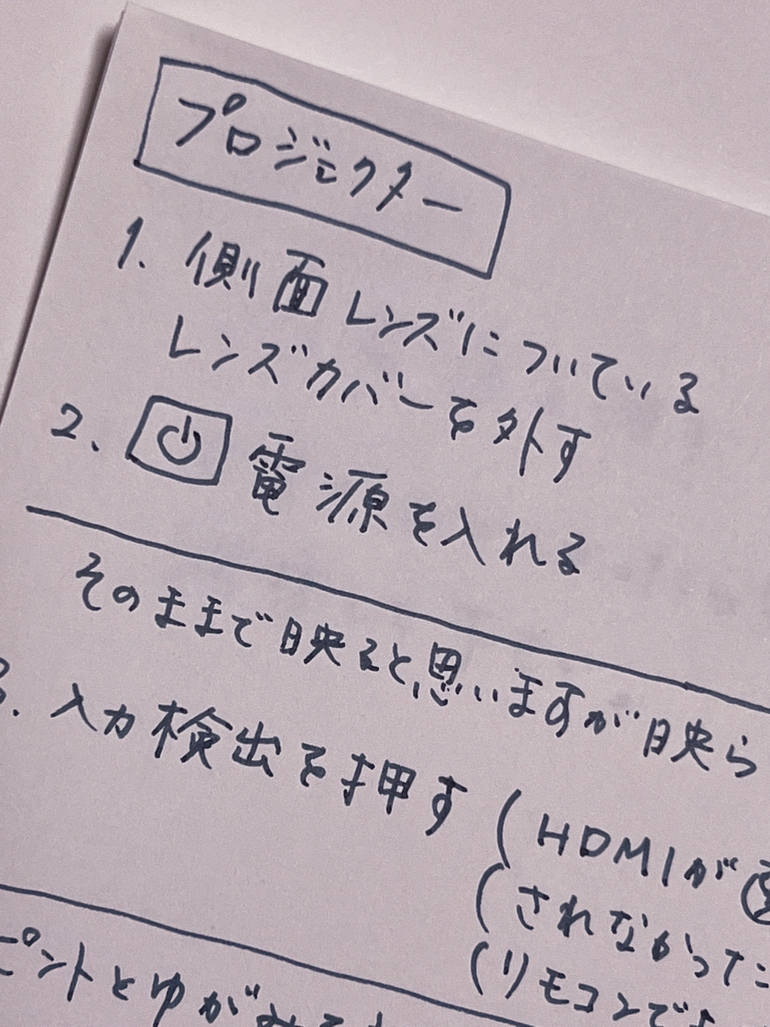 プロジェクター
1. 側面レンズについている
レンズカバーを外す
2. 電源を入れる
そのままで映ると思いますが映ら
3. 入力検出を押す (HDMIが
(されなかった
(リモコンで
ピントとゆがみ